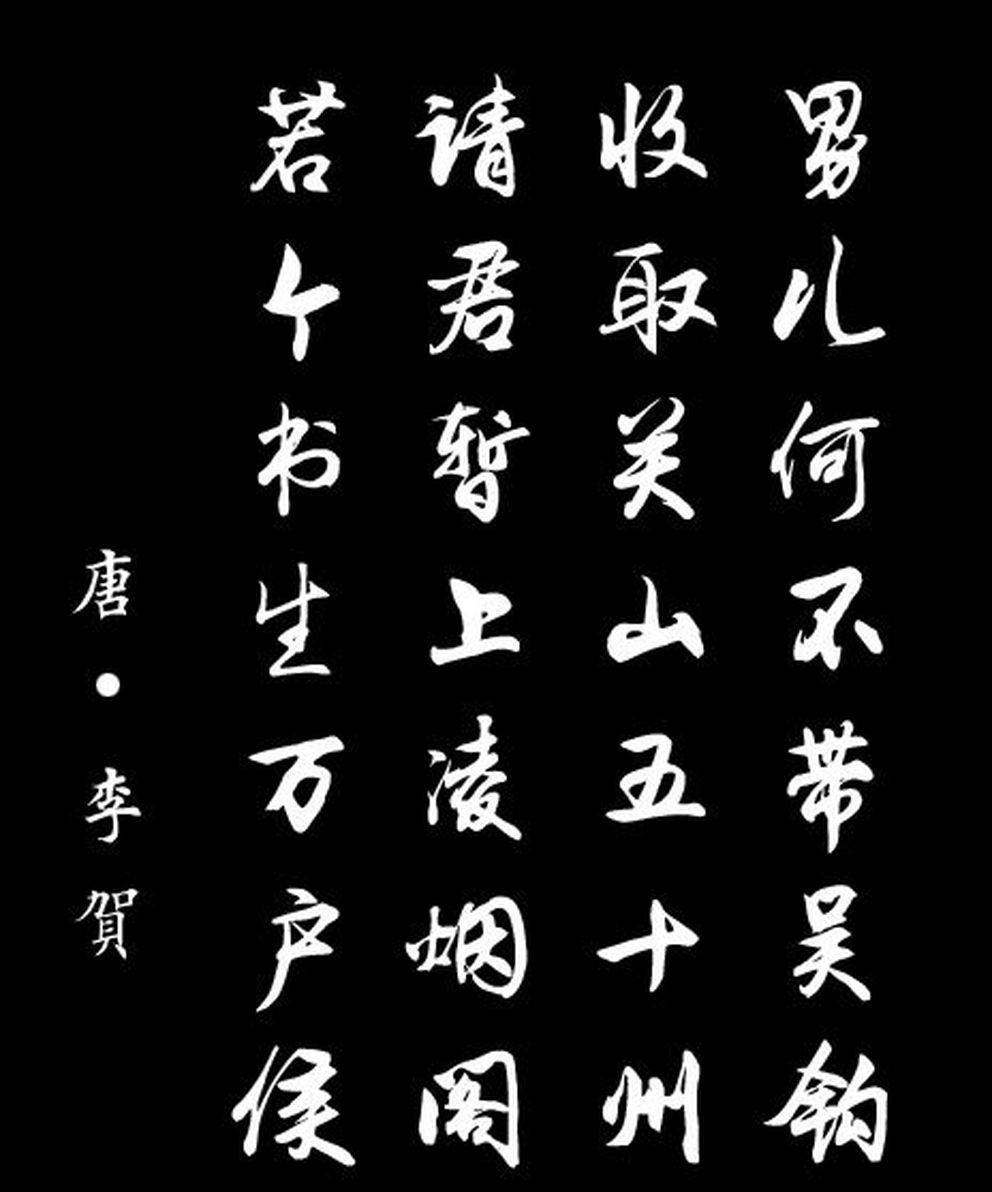 男儿何不带吴钩
收取关山五十州
请君暂上凌烟阁
若个书生万户侯
唐·李賀